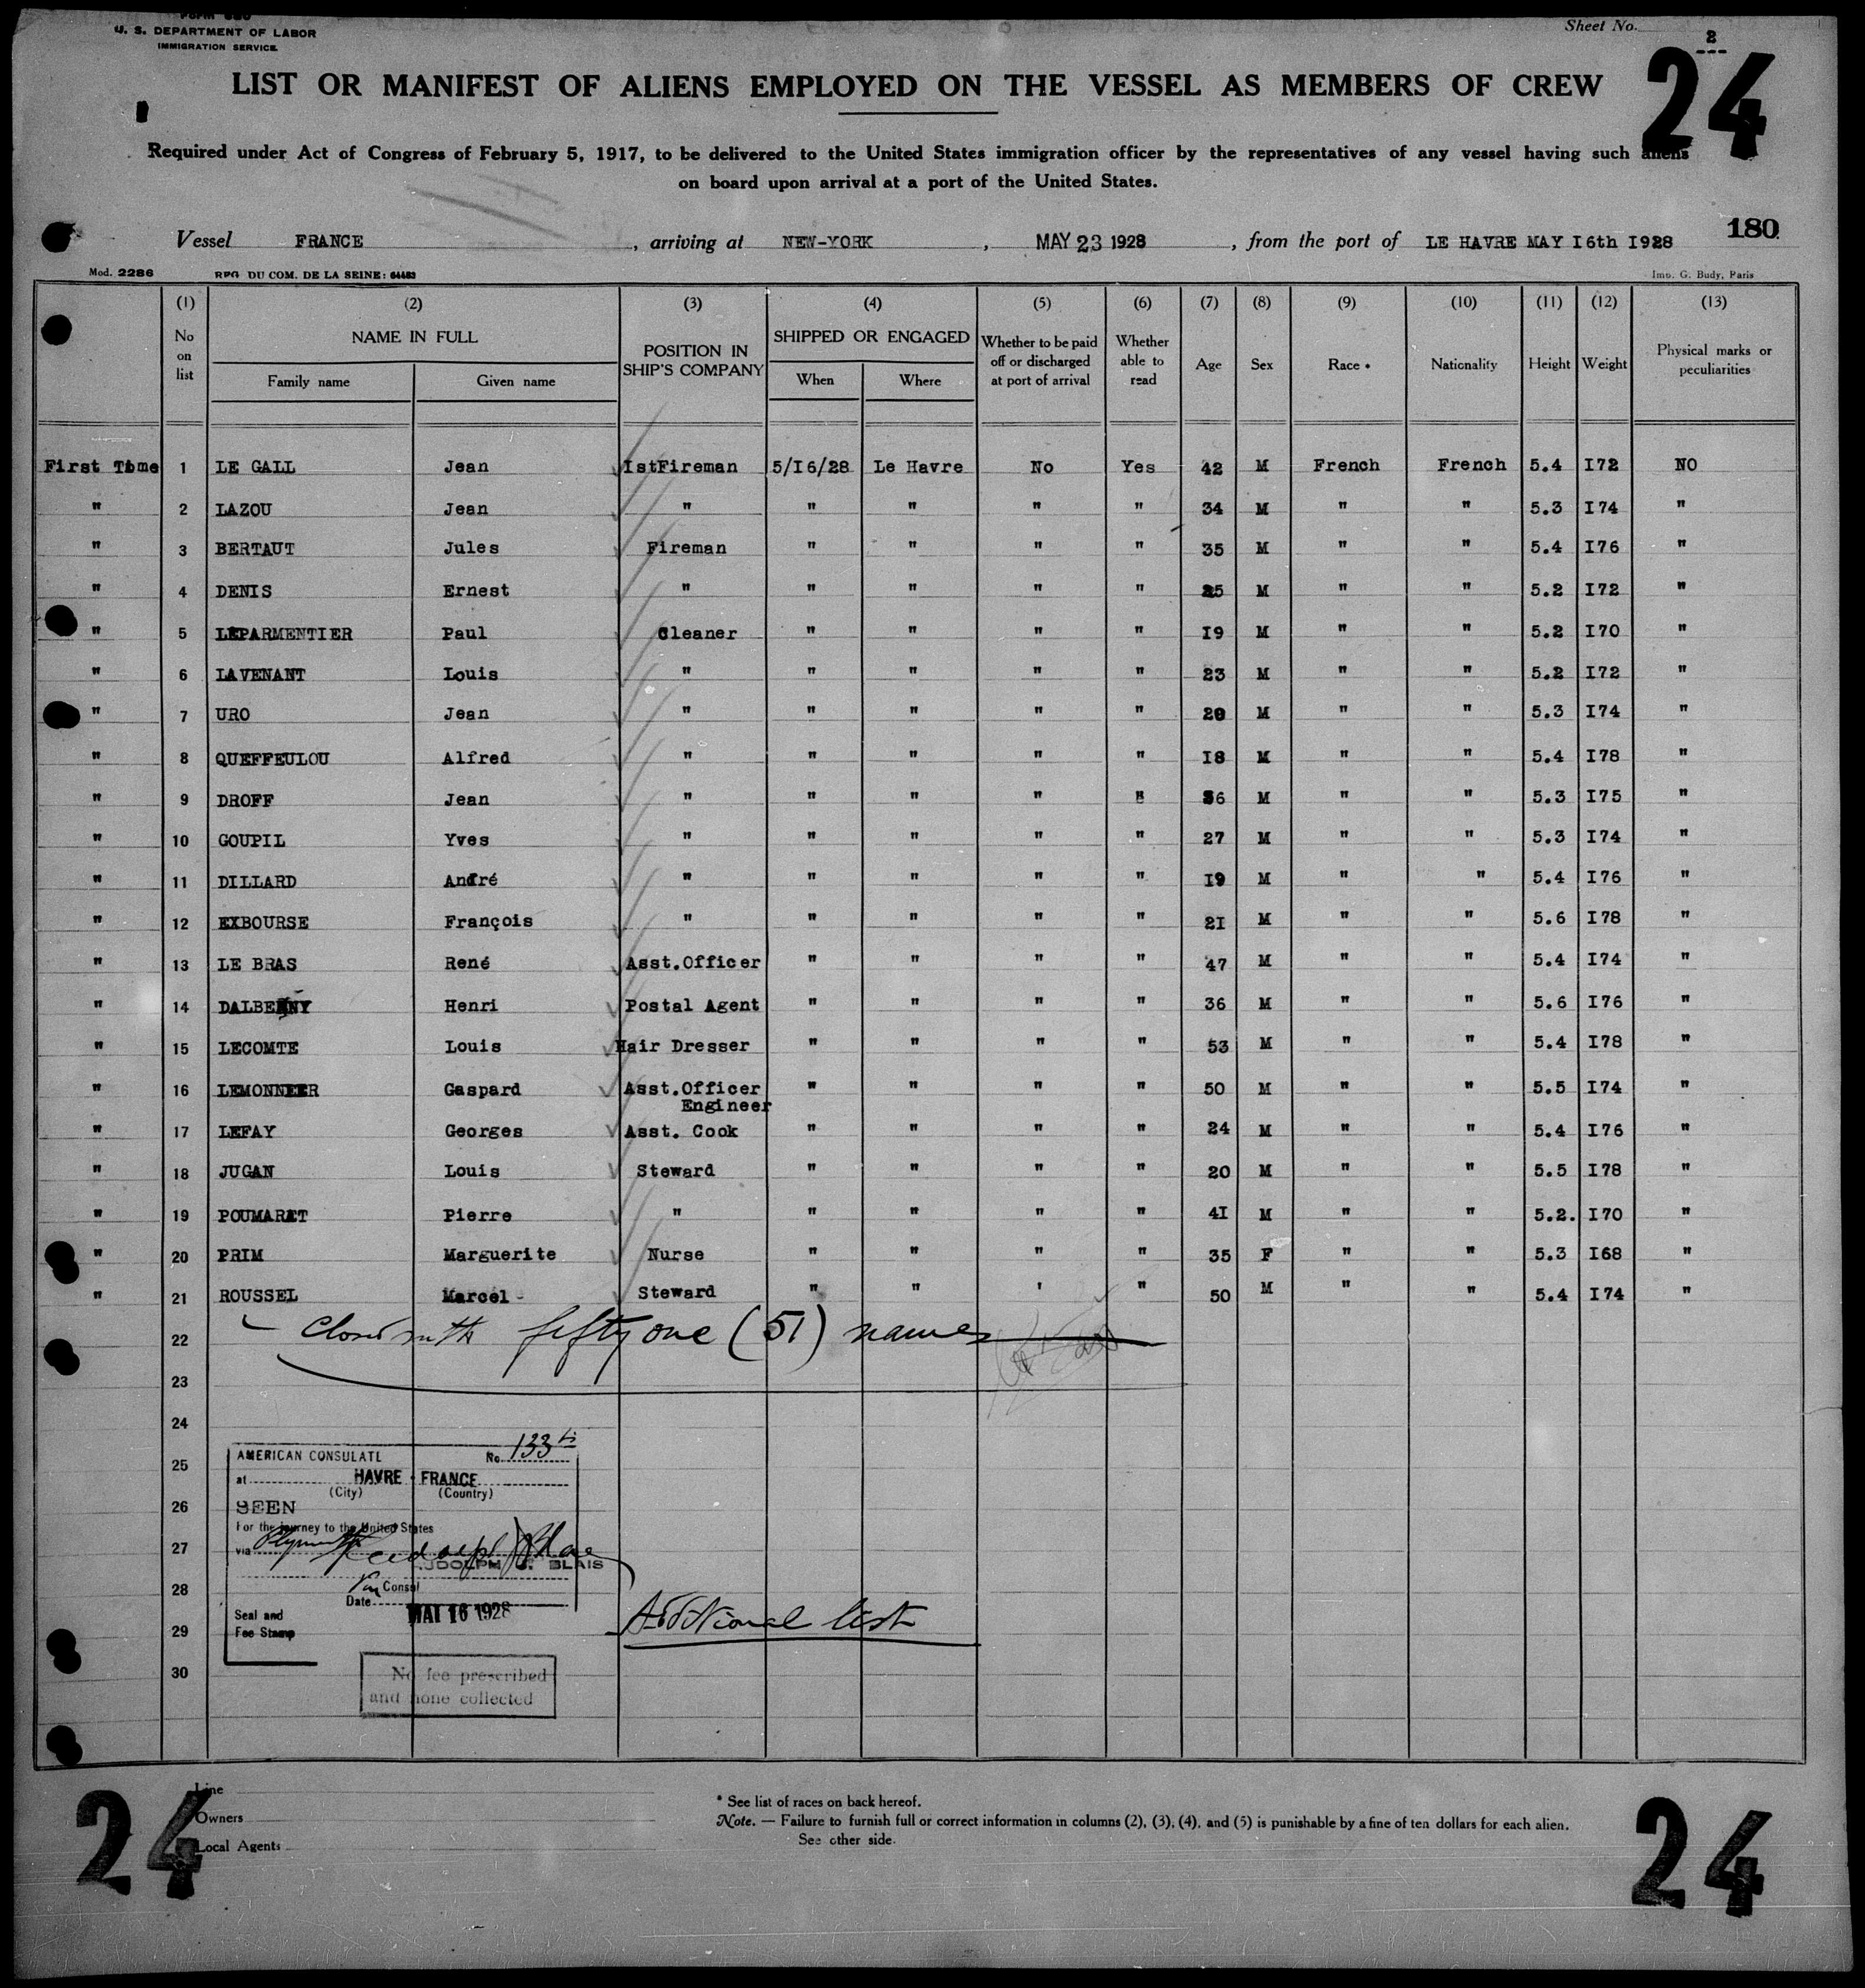 Form 680
U. S. DEPARTMENT OF LABOR
IMMIGRATION SERVICE
Sheet No. 2
24
LIST OR MANIFEST OF ALIENS EMPLOYED ON THE VESSEL AS MEMBERS OF CREW
Required under Act of Congress of February 5, 1917, to be delivered to the United States immigration officer by the representatives of any vessel having such aliens
on board upon arrival at a port of the United States.
180
Vessel FRANCE, arriving at NEW-YORK, MAY 23 1928, from the port of LE HAVRE MAY I6th I928
Mod. 2286 REG DU COM. DE LA SEINE: 64483 Imp. G. Budy, Paris
(1) (2) (3) (4) (5) (6) (7) (8) (9) (10) (11) (12) (13)
No on list NAME IN FULL POSITION IN SHIP'S COMPANY SHIPPED OR ENGAGED Whether to be paid off or discharged at port of arrival Whether able to read Age Sex Race * Nationality Height Weight Physical marks or peculiarities
Family name Given name When Where
First Time 1 LE GALL Jean IstFireman 5/I6/28 Le Havre No Yes 42 M French French 5.4 I72 NO
" 2 LAZOU Jean " " " " " 34 M " " 5.3 I74 "
" 3 BERTAUT Jules Fireman " " " " 35 M " " 5.4 I76 "
" 4 DENIS Ernest " " " " " 25 M " " 5.2 I72 "
" 5 LEPARMENTIER Paul Cleaner " " " " I9 M " " 5.2 I70 "
" 6 LAVENANT Louis " " " " " 23 M " " 5.2 I72 "
" 7 URO Jean " " " " " 20 M " " 5.3 I74 "
" 8 QUEFFEULOU Alfred " " " " " I8 M " " 5.4 I78 "
" 9 DROFF Jean " " " " " 36 M " " 5.3 I75 "
" 10 GOUPIL Yves " " " " " 27 M " " 5.3 I74 "
" 11 DILLARD André " " " " " I9 M " " 5.4 I76 "
" 12 EXBOURSE François " " " " " 2I M " " 5.6 I78 "
" 13 LE BRAS René Asst.Officer " " " " 47 M " " 5.4 I74 "
" 14 DALBENNY Henri Postal Agent " " " " 36 M " " 5.6 I76 "
" 15 LECOMTE Louis Hair Dresser " " " " 53 M " " 5.4 I78 "
" 16 LEMONNEER Gaspard Asst.Officer Engineer " " " " 50 M " " 5.5 I74 "
" 17 LEFAY Georges Asst. Cook " " " " 24 M " " 5.4 I76 "
" 18 JUGAN Louis Steward " " " " 20 M " " 5.5 I78 "
" 19 POUMARAT Pierre " " " " " 4I M " " 5.2. I70 "
" 20 PRIM Marguerite Nurse " " " " 35 F " " 5.3 I68 "
" 21 ROUSSEL Marcel Steward " " ' " 50 M " " 5.4 I74 "
22 Closed with fifty one (51) names
23
24
25
26
27
28
29
30
AMERICAN CONSULATE No. 133
at HAVRE FRANCE
(City) (Country)
SEEN
For the journey to the United States
via Plymouth
RUDOLPH J. BLAIS
Consul
Date MAI 16 1928
Seal and
Fee Stamp
Additional list
No fee prescribed
and none collected
Line
Owners
Local Agents
* See list of races on back hereof.
Note. — Failure to furnish full or correct information in columns (2), (3), (4), and (5) is punishable by a fine of ten dollars for each alien.
See other side.
24
24